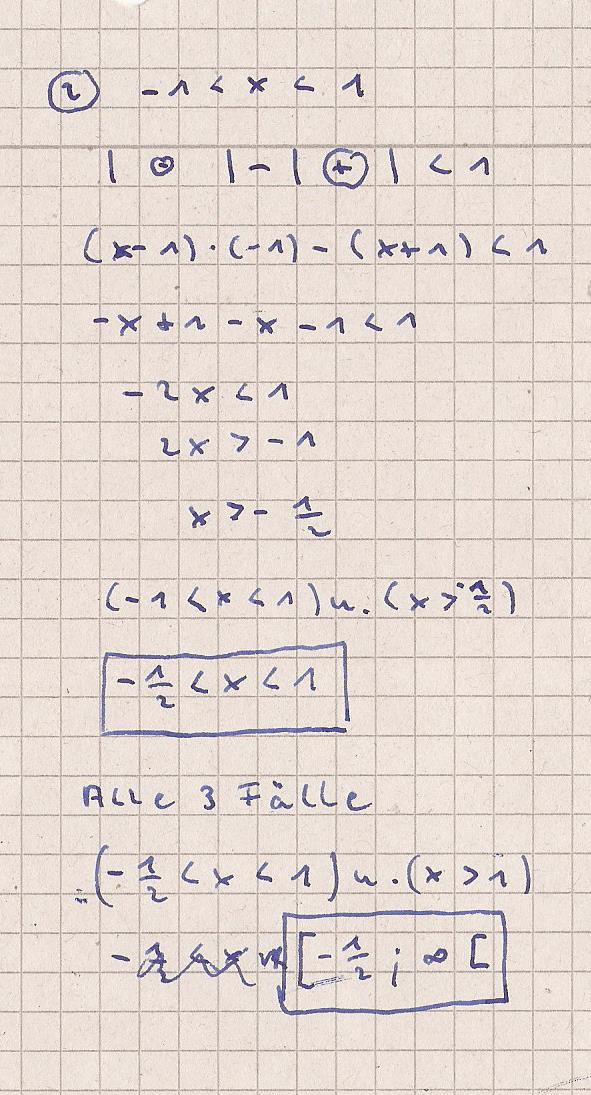 ② -1 < x < 1
| ⊖ | - | ⊕ | < 1
(x-1)·(-1) - (x+1) < 1
-x+1-x-1<1
-2x<1
2x>-1
x>-1/2
(-1<x<1) u. (x>-1/2)
-1/2 < x < 1
Alle 3 Fälle
(-1/2 < x < 1) u. (x>1)
[-1/2 ; ∞ [